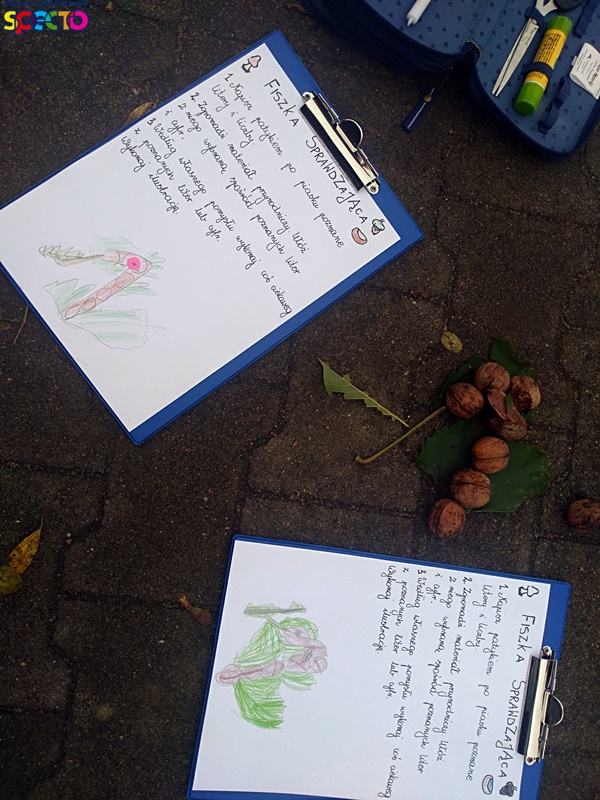 SPECTO
FISZKA SPRAWDZAJĄCA
1. Napisz patykiem po piasku poznane
litery i liczby
2. Zgromadź materiał przyrodniczy. Ułóż
z niego wybraną spośród poznanych liter
i cyfr.
3. Według własnego pomysłu wykonaj coś ciekawego
z poznanych liter lub cyfr.
Wykonaj ilustrację.
FISZKA SPRAWDZAJĄCA
1. Napisz patykiem po piasku poznane
litery i liczby
2. Zgromadź materiał przyrodniczy. Ułóż
z niego wybraną spośród poznanych liter
i cyfr.
3. Według własnego pomysłu wykonaj coś ciekawego
z poznanych liter lub cyfr.
Wykonaj ilustrację.